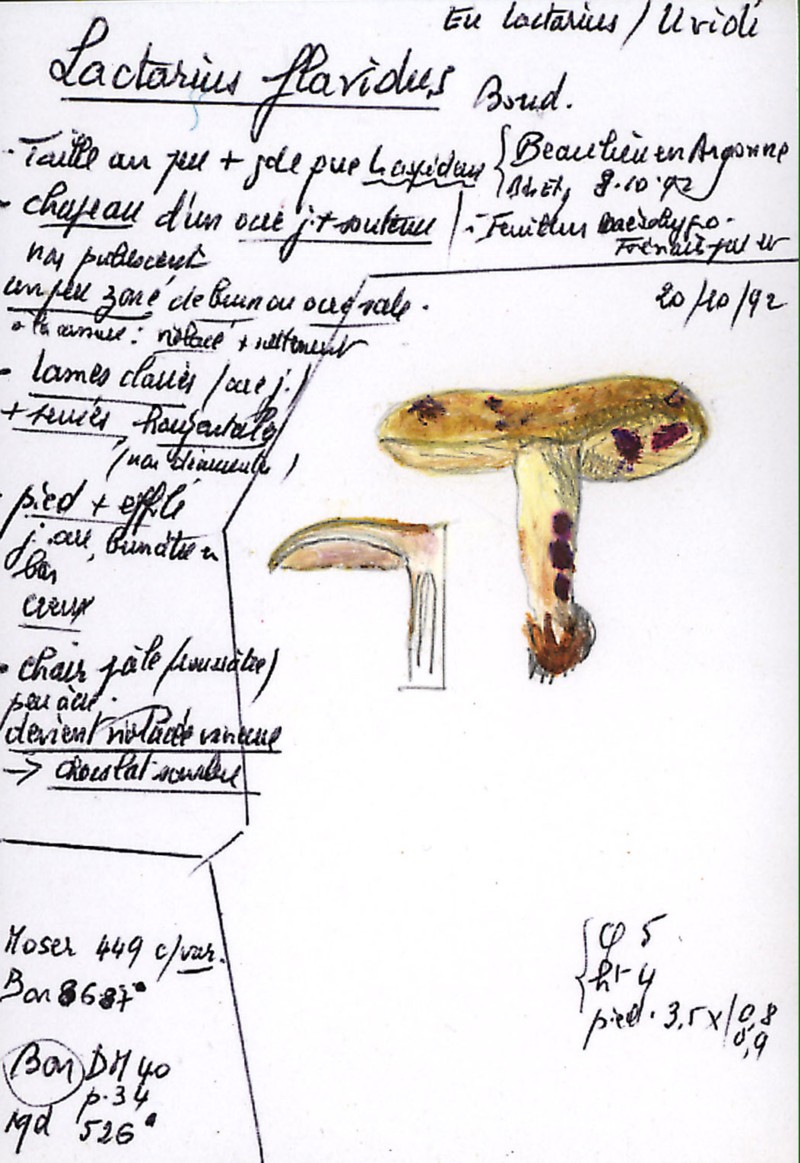 Eu lactarius / Uvidi
Lactarius flavidus Boud.
- Taille un peu + gde que
Beaulieu en Argonne
8.10.92
- chapeau d'un ocre j. + soutenu
- Feuillus
non pubescent
un peu zoné de brun ou ocre sale.
20/10/92
: violacé + nettement
- lames claires (ocre j.)
+ serrées horizontales
(non
- pied + effilé
j. ocre, brunâtre en
bas
creux
- chair pâle
peu âcre.
devient violacée vineuse
-> chocolat sombre
Moser 449 c/var.
Bon 86.87
Bon DM 40
p.34
526
φ 5
ht 4
pied. 3,5 x 0,8
0,9